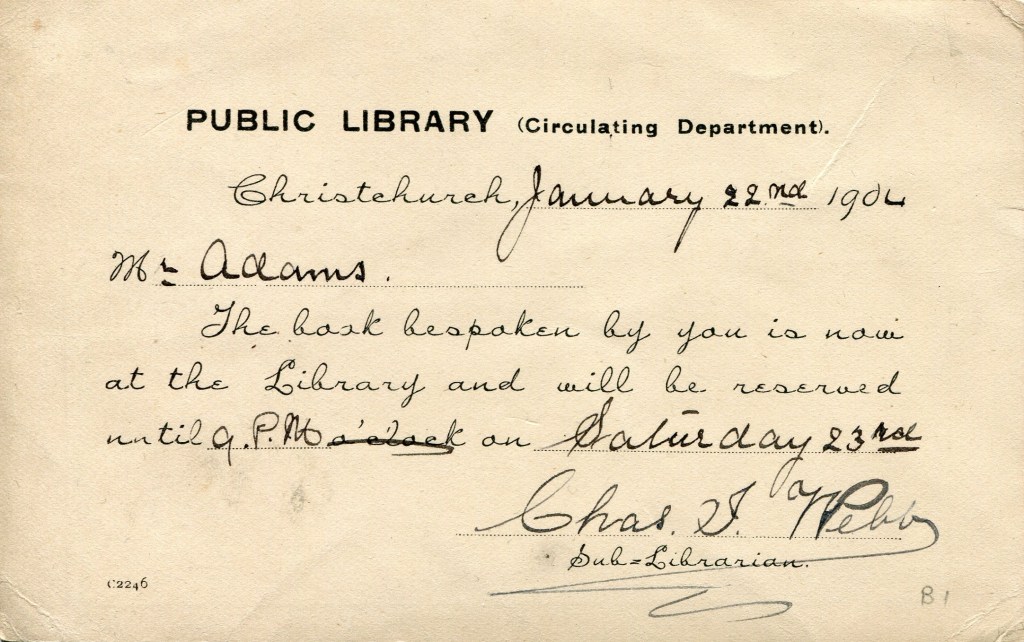 PUBLIC LIBRARY (Circulating Department).
Christchurch, January 22nd 1904
Mr Adams.
The book bespoken by you is now
at the Library and will be reserved
until 9. P.M o'clock on Saturday 23rd
Chas. T. Webb
Sub=Librarian.
C2246
B1